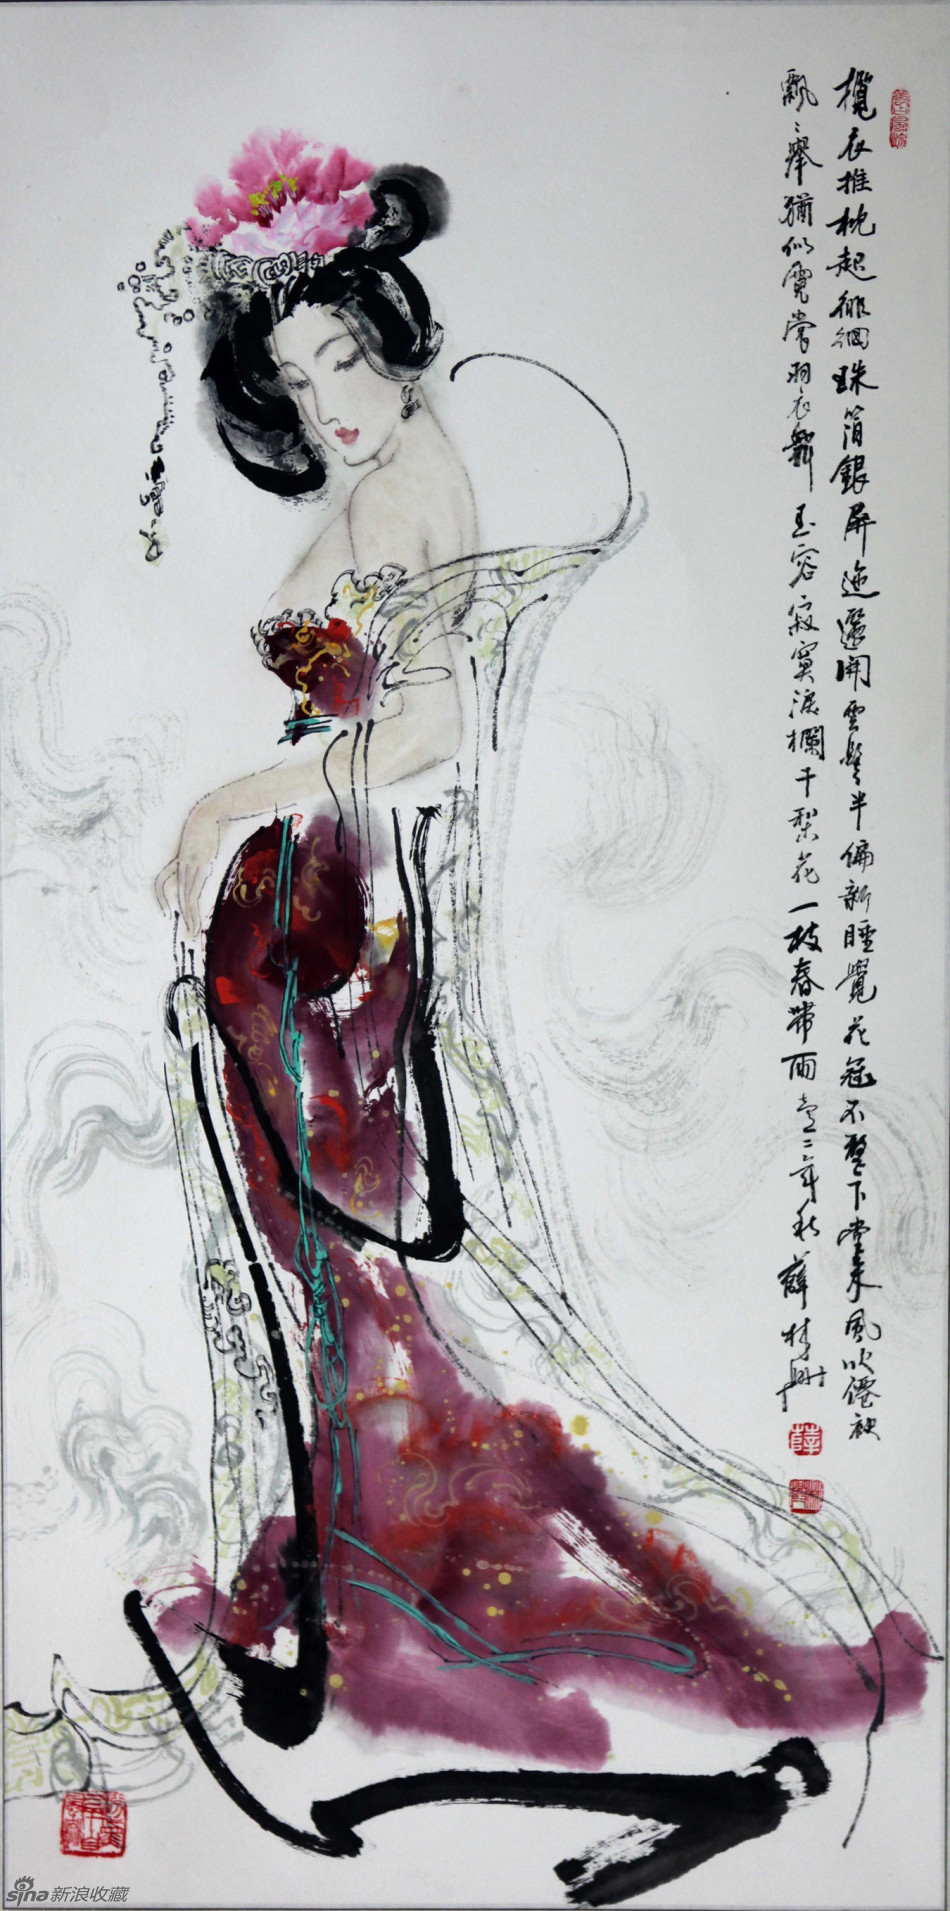 攬衣推枕起徘徊珠箔銀屏迤邐開雲髻半偏新睡覺花冠不整下堂來風吹僊袂
飄〻舉猶似霓裳羽衣舞玉容寂寞淚欄干梨花一枝春帶雨壹二年秋薛林興
薛
sina新浪收藏